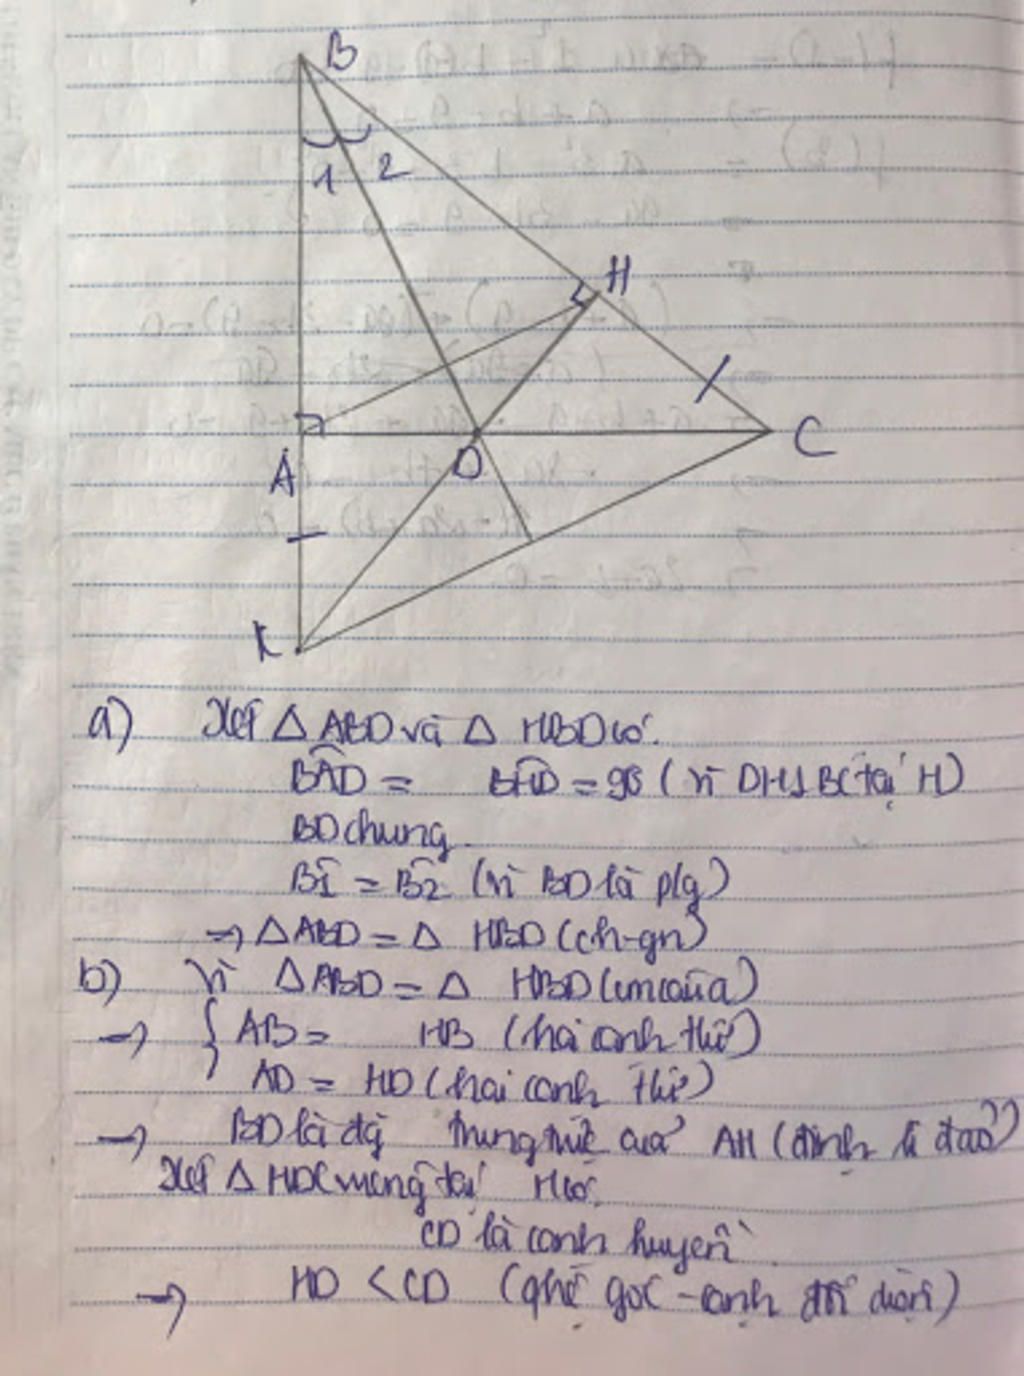 B
1 2
H
A
D
C
K
a) Xét △ ABD và △ HBD có:
BÂD = BĤD = 90 (vì DH⊥BC tại H)
BD chung
B̂1 = B̂2 (vì BD là p/g)
=> △ ABD = △ HBD (ch-gn)
b) Vì △ ABD = △ HBD (cm câu a)
=> { AB = HB (hai cạnh t/ứ)
AD = HD (hai cạnh t/ứ)
=> BD là đg trung trực của AH (định lí đảo)
Xét △ HDC vuông tại H có:
CD là cạnh huyền
=> HD < CD (qhệ góc - cạnh đối diện)